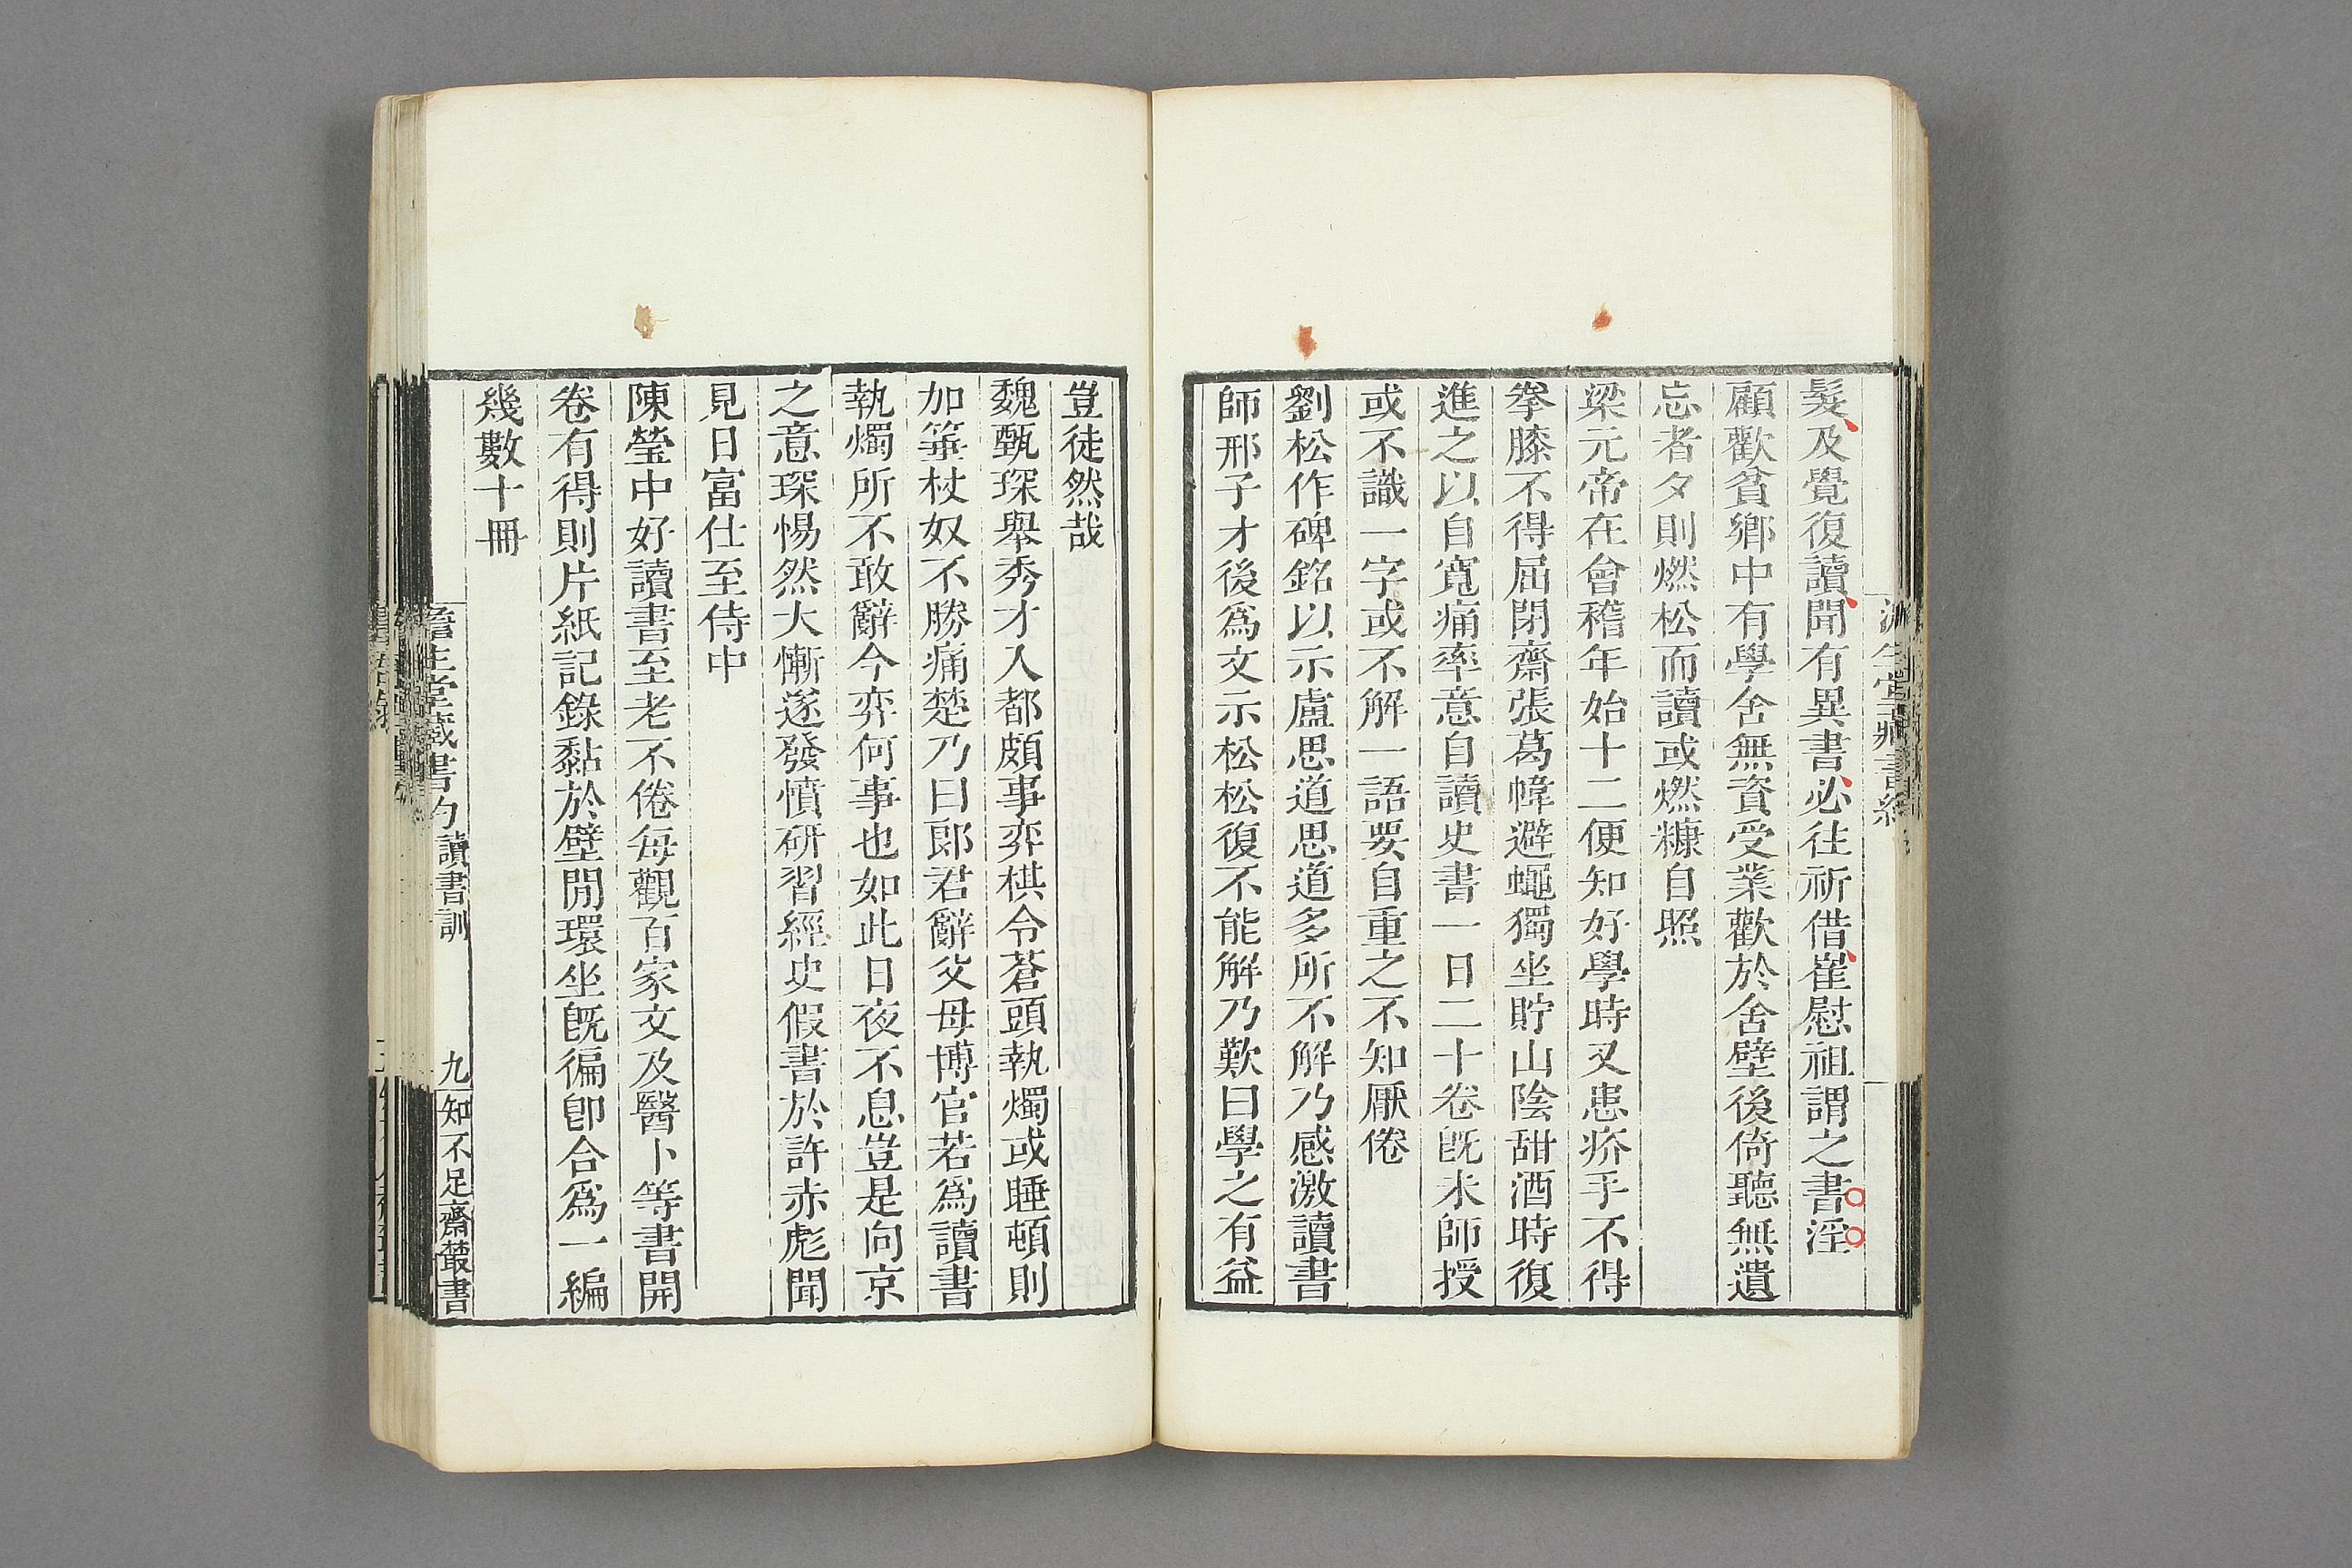 髮及覺復讀聞有異書必往祈借崔慰祖謂之書淫
顧歡貧鄉中有學舍無資受業歡於舍壁後倚聽無遺
忘者夕則燃松而讀或燃糠自照
梁元帝在會稽年始十二便知好學時又患疥手不得
拳膝不得屈閉齋張葛幃避蠅獨坐貯山陰甜酒時復
進之以自寬痛率意自讀史書一日二十卷旣未師授
或不識一字或不解一語要自重之不知厭倦
劉松作碑銘以示盧思道思道多所不解乃感激讀書
師邢子才後爲文示松松復不能解乃歎曰學之有益
豈徒然哉
魏甄琛舉秀才入都頗事弈棋令蒼頭執燭或睡頓則
加箠杖奴不勝痛楚乃曰郎君辭父母博官若爲讀書
執燭所不敢辭今弈何事也如此日夜不息豈是向京
之意琛惕然大慚遂發憤研習經史假書於許赤彪聞
見日富仕至侍中
陳瑩中好讀書至老不倦每觀百家文及醫卜等書開
卷有得則片紙記錄黏於壁閒環坐旣徧卽合爲一編
幾數十冊
澹生堂藏書約讀書訓
九
知不足齋叢書